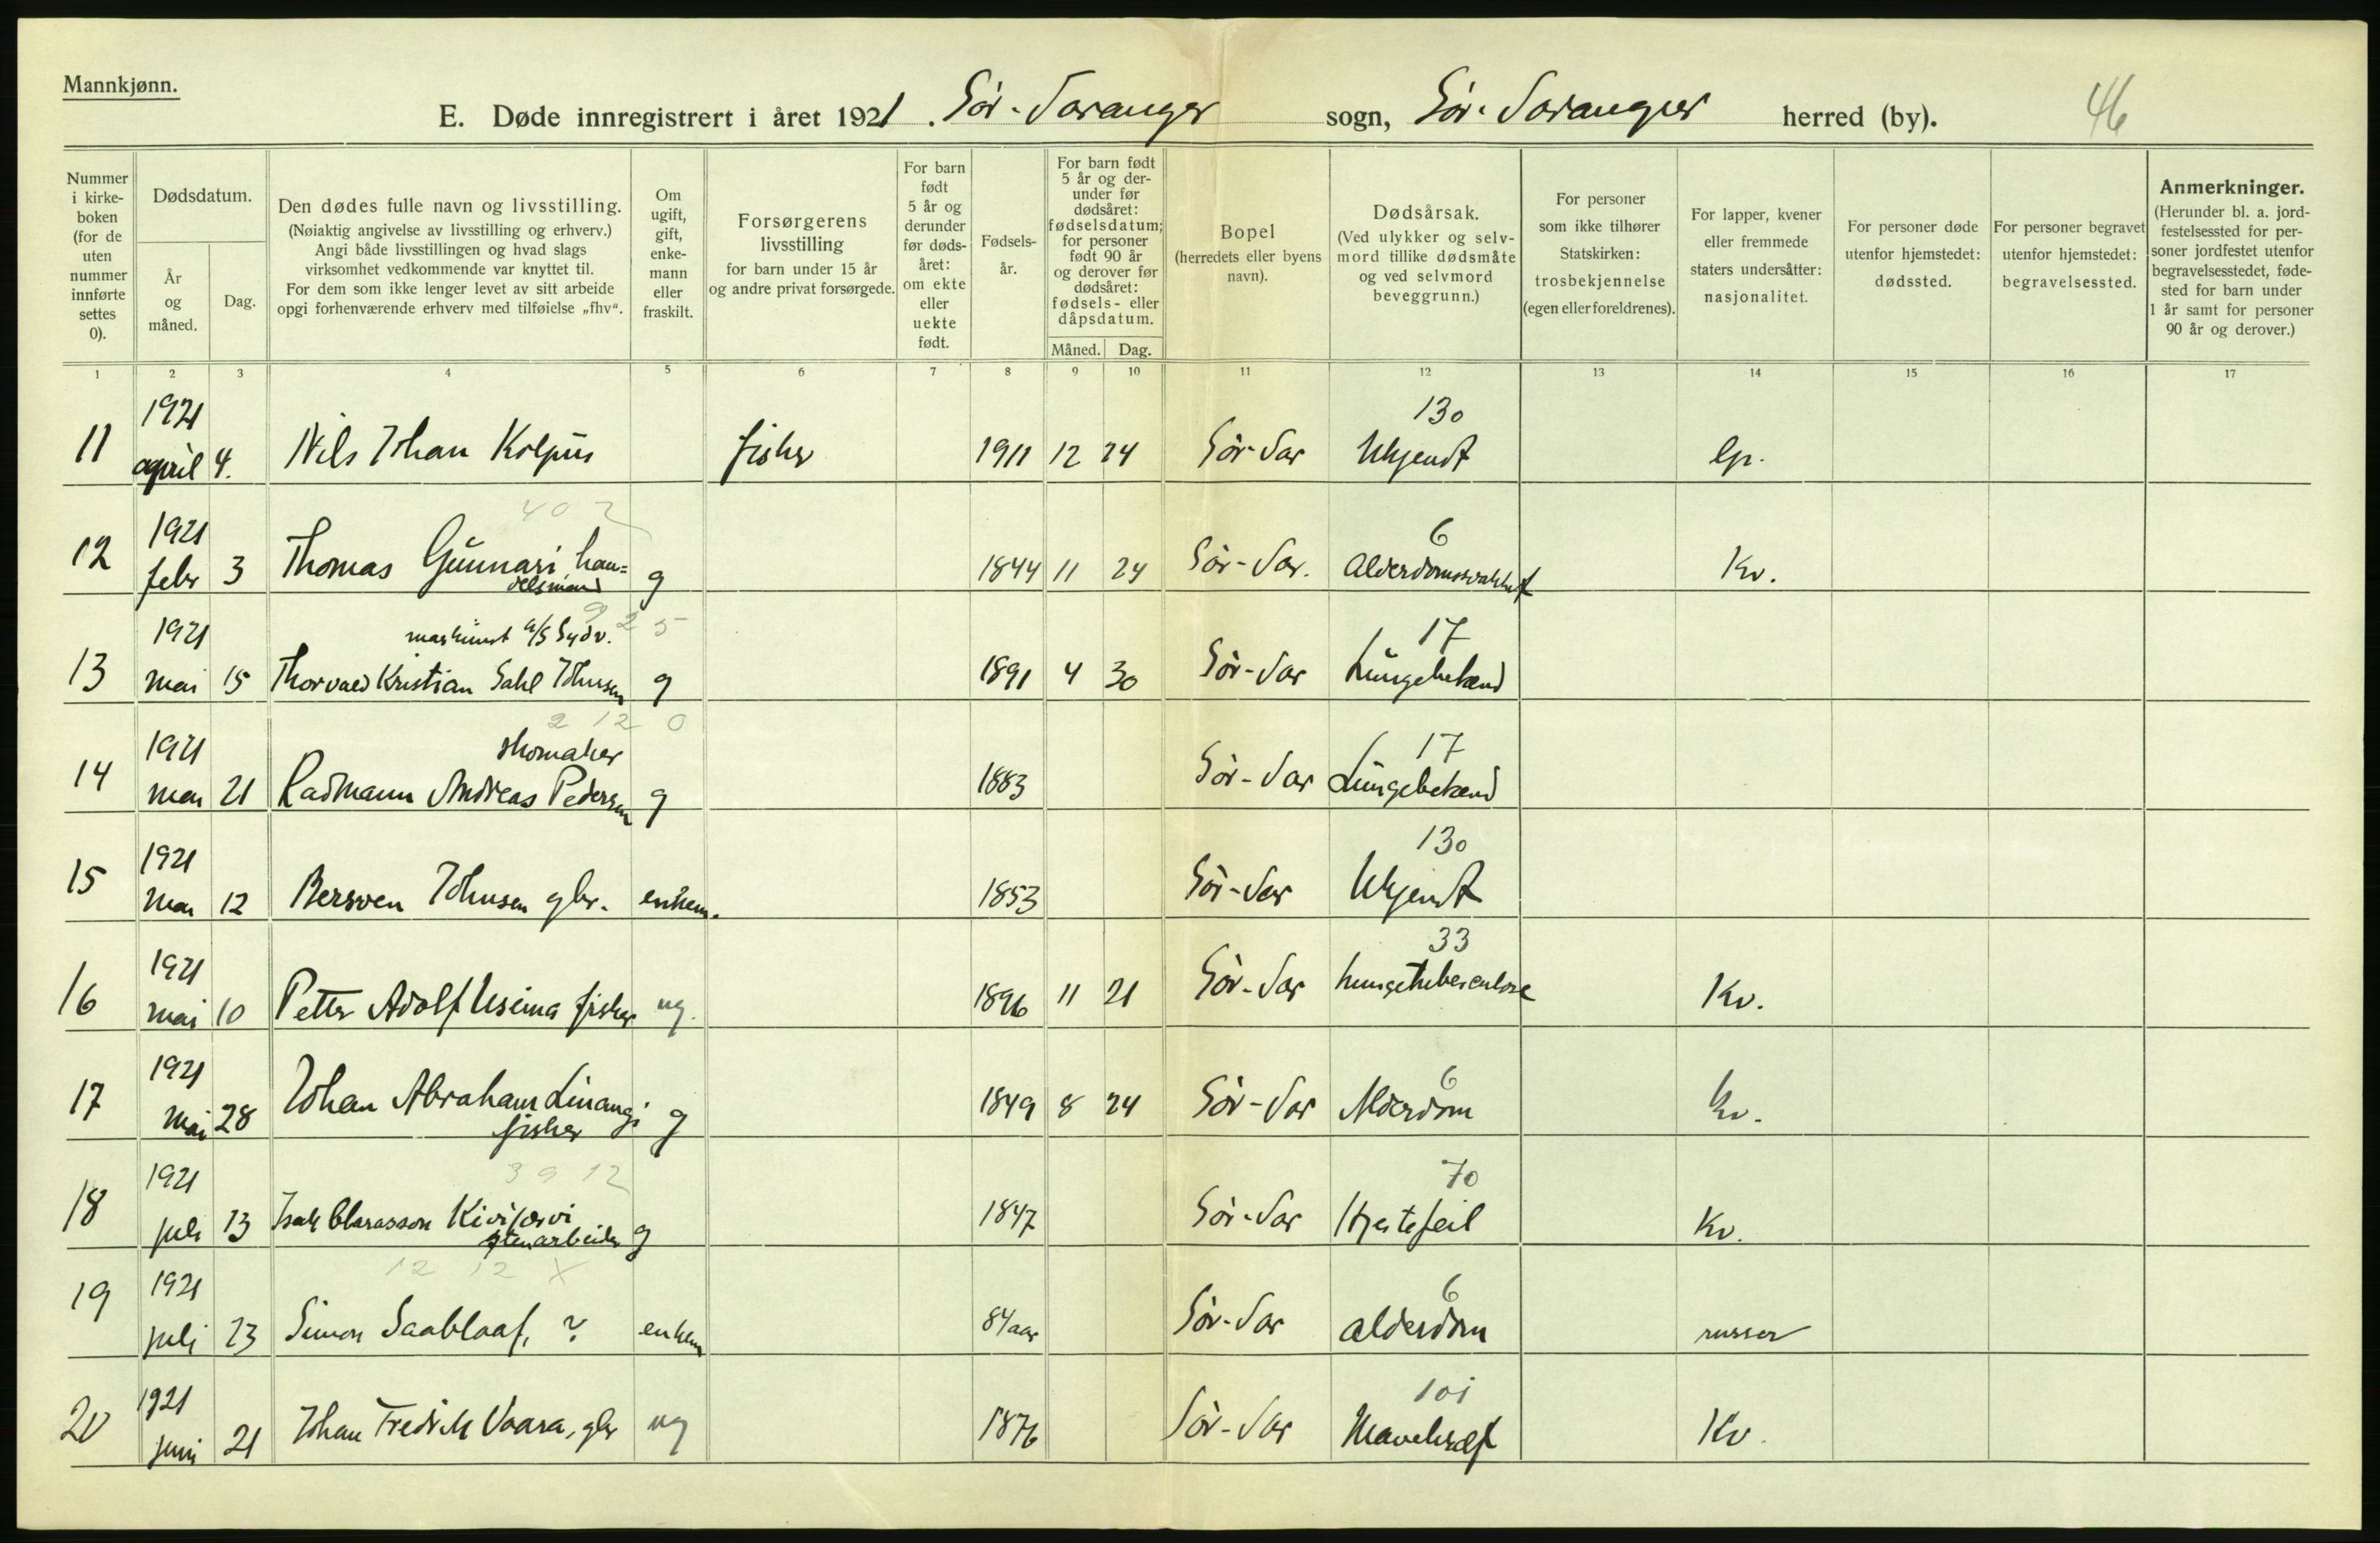 Mannkjønn.
E. Døde innregistrert i året 1921. Sør-Varanger sogn, Sør-Varanger herred (by). 46
Nummer i kirke-boken (for de uten nummer innførte settes 0).
Dødsdatum.
År og måned.
Dag.
Den dødes fulle navn og livsstilling.
(Nøiaktig angivelse av livsstilling og erhverv.)
Angi både livsstillingen og hvad slags
virksomhet vedkommende var knyttet til.
For dem som ikke lenger levet av sitt arbeide
opgi forhenværende erhverv med tilføielse „fhv“.
Om ugift, gift, enke-mann eller fraskilt.
Forsørgerens livsstilling
for barn under 15 år
og andre privat forsørgede.
For barn født 5 år og derunder før døds-året: om ekte eller uekte født.
Fødsels-år.
For barn født 5 år og der-under før dødsåret: fødselsdatum; for personer født 90 år og derover før dødsåret: fødsels- eller dåpsdatum.
Måned. Dag.
Bopel
(herredets eller byens navn).
Dødsårsak.
(Ved ulykker og selv-mord tillike dødsmåte og ved selvmord beveggrunn.)
For personer som ikke tilhører Statskirken: trosbekjennelse (egen eller foreldrenes).
For lapper, kvener eller fremmede staters undersåtter: nasjonalitet.
For personer døde utenfor hjemstedet: dødssted.
For personer begravet utenfor hjemstedet: begravelsessted.
Anmerkninger.
(Herunder bl. a. jord-festelsessted for per-soner jordfestet utenfor begravelsesstedet, føde-sted for barn under 1 år samt for personer 90 år og derover.)
1 2 3 4 5 6 7 8 9 10 11 12 13 14 15 16 17
1921 130
11 april 4. Nils Johan Kolpus fisker 1911 12 24 Sør-Var Ukjendt lp.
402
1921 6
12 febr 3 Thomas Gunnari han=delsmand g 1844 11 24 Sør-Var. Alderdomssvakhet Kv.
925
1921 maskinist a/s Sydv. 17
13 mai 15 Thorvald Kristian Dahl Johnsen g 1891 4 30 Sør-Var Lungebetænd
2 12 0
1921 skomaker 17
14 mai 21 Radmann Andreas Pedersen g 1883 Sør-Var Lungebetænd
1921 130
15 mai 12 Bersven Johnsen gbr. enkem. 1853 Sør-Var Ukjendt
1921 33
16 mai 10 Petter Adolf Useima fisker ug. 1896 11 21 Sør-Var Lungetuberculose Kv.
1921 6
17 mai 28 Johan Abraham Linangi fisker g 1849 8 24 Sør-Var Alderdom Kv.
3 9 12
1921 70
18 juli 13 Isak Clarasson Kivijærvi stenarbeider g 1847 Sør-Var Hjertefeil Kv.
12 12 X
1921 6
19 juli 23 Simon Saablaaf, ? enkem 84 aar Sør-Var alderdom russer
1921 101
20 juni 21 Johan Fredrik Vaara, gbr ug 1876 Sør-Var Mavekræft Kv.